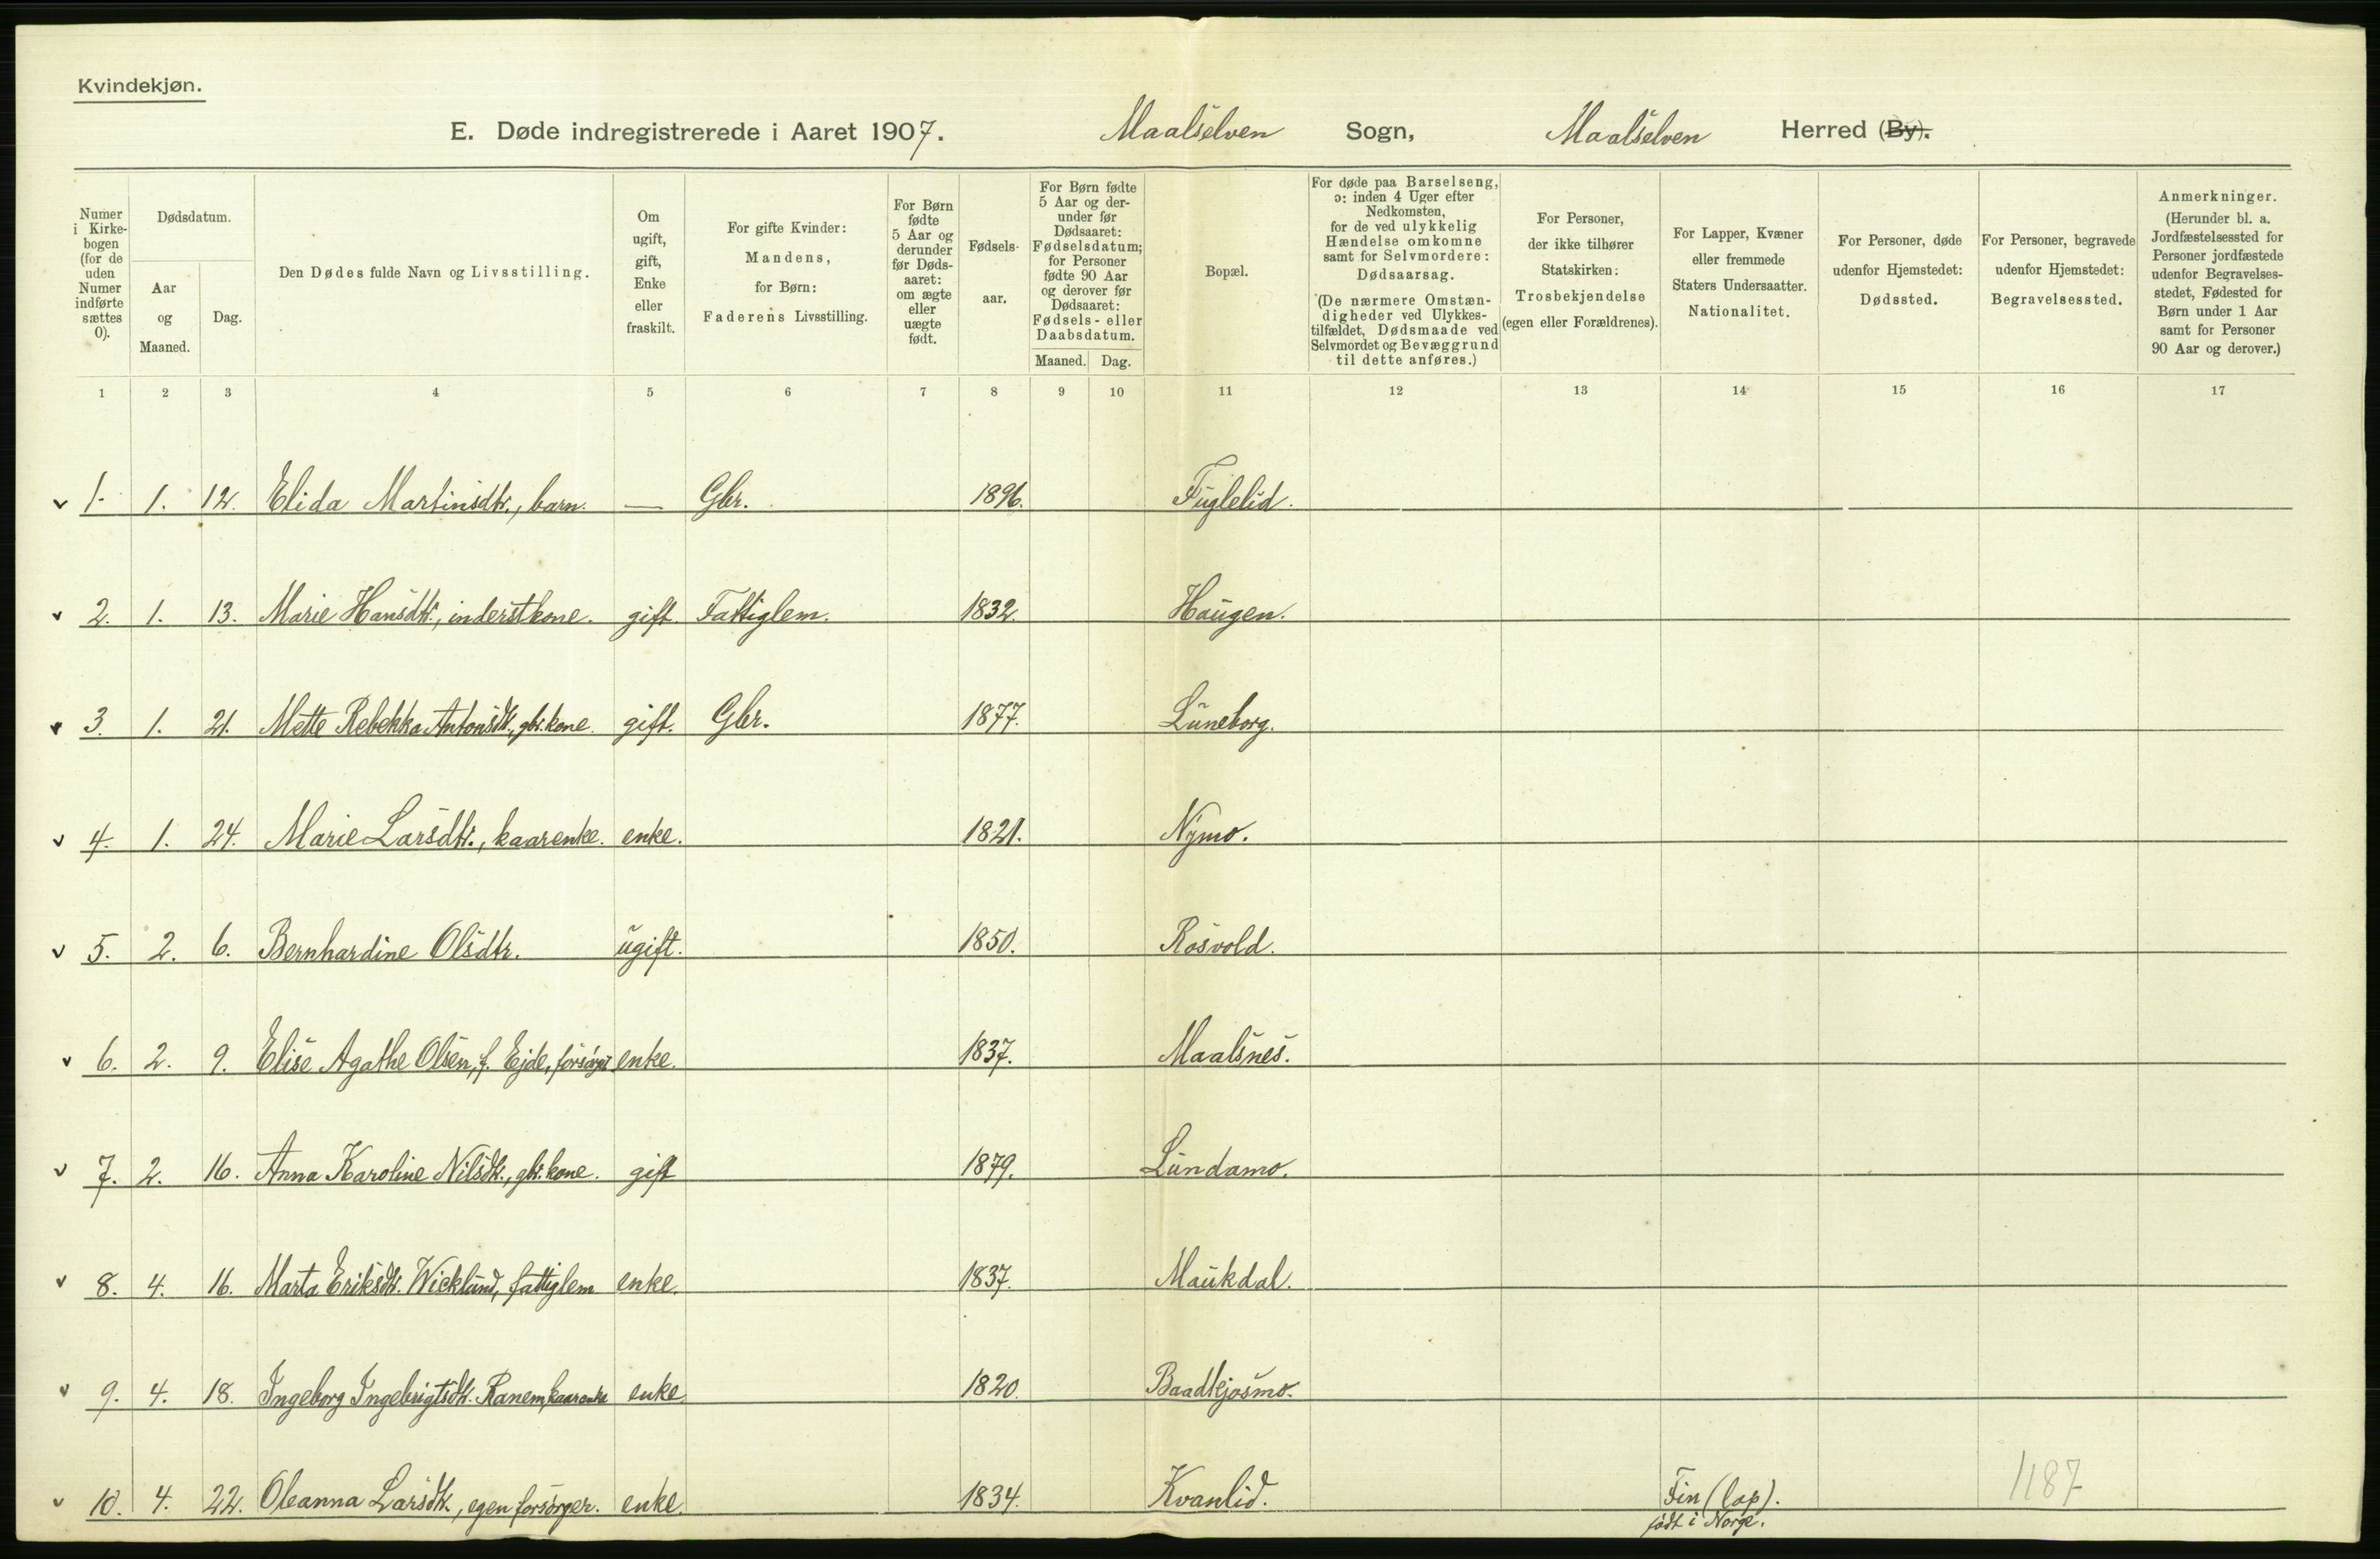 Kvindekjøn.
E. Døde indregistrerede i Aaret 1907. Maalselven Sogn, Maalselven Herred (By).
Numer i Kirke-bogen (for de uden Numer indførte sættes 0).
Dødsdatum.
Aar og Maaned.
Dag.
Den Dødes fulde Navn og Livsstilling.
Om ugift, gift, Enke eller fraskilt.
For gifte Kvinder: Mandens, for Børn: Faderens Livsstilling.
For Børn fødte 5 Aar og derunder før Døds-aaret: om ægte eller uægte født.
Fødsels-aar.
For Børn fødte 5 Aar og der-under før Dødsaaret: Fødselsdatum; for Personer fødte 90 Aar og derover før Dødsaaret: Fødsels- eller Daabsdatum.
Maaned. Dag.
Bopæl.
For døde paa Barselseng, ɔ: inden 4 Uger efter Nedkomsten, for de ved ulykkelig Hændelse omkomne samt for Selvmordere: Dødsaarsag.
(De nærmere Omstæn-digheder ved Ulykkes-tilfældet, Dødsmaade ved Selvmordet og Bevæggrund til dette anføres.)
For Personer, der ikke tilhører Statskirken: Trosbekjendelse (egen eller Forældrenes).
For Lapper, Kvæner eller fremmede Staters Undersaatter. Nationalitet.
For Personer, døde udenfor Hjemstedet: Dødssted.
For Personer, begravede udenfor Hjemstedet: Begravelsessted.
Anmerkninger.
(Herunder bl. a. Jordfæstelsessted for Personer jordfæstede udenfor Begravelses-stedet, Fødested for Børn under 1 Aar samt for Personer 90 Aar og derover.)
1 2 3 4 5 6 7 8 9 10 11 12 13 14 15 16 17
v 1. 1. 12. Elida Martinsdtr., barn. — Gbr. 1896. Fuglelid.
v 2. 1. 13. Marie Hansdtr., inderstkone. gift. Fattiglem. 1832. Haugen.
v 3. 1. 21. Mette Rebekka Antonsdtr., gbr.kone. gift. Gbr. 1877. Luneborg.
v 4. 1. 24. Marie Larsdtr., kaarenke. enke. 1821. Nymo.
v 5. 2. 6. Bernhardine Olsdtr. ugift. 1850. Rosvold.
v 6. 2. 9. Elise Agathe Olsen, f. Ejde, forsørget enke. 1837. Maalsnes.
v 7. 2. 16. Anna Karoline Nilsdtr., gbr.kone. gift 1879. Lundamo.
v 8. 4. 16. Marta Eriksdtr. Wicklund, fattiglem enke. 1837. Maukdal.
v 9. 4. 18. Ingeborg Ingebrigtsdtr. Ranem, kaarenke enke. 1820. Baadkjosmo.
v 10. 4. 22. Oleanna Larsdtr., egen forsørger. enke. 1834. Kvanlid. Fin (lap). 1187
født i Norge.